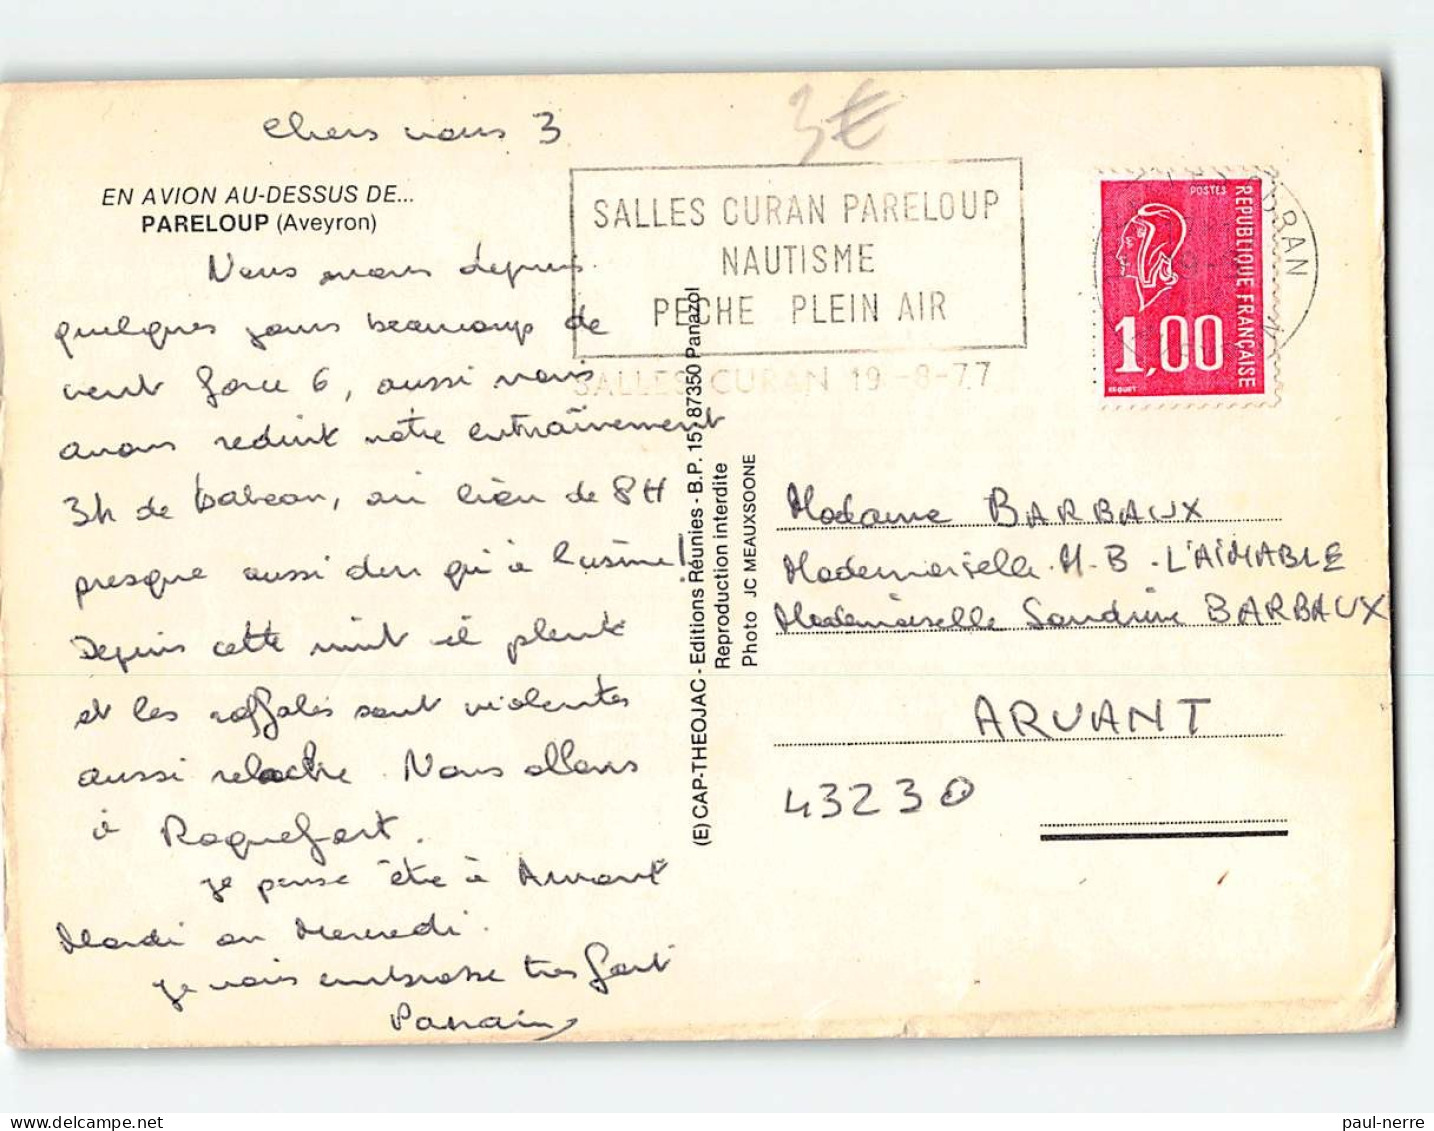 Chers vous 3
3€
EN AVION AU-DESSUS DE...
PARELOUP (Aveyron)
Nous avons depuis
quelques jours beaucoup de
vent force 6, aussi nous
avons reduit notre entraînement
3h de bateau, au lieu de 8H
presque aussi dur qu'à l'usine!
Depuis cette nuit il pleut
et les raffales sont violentes
aussi relache. Nous allons
à Roquefort.
je pense être à Arvant
Mardi ou Mercredi.
je vous embrasse très fort
Parrain
SALLES CURAN PARELOUP
NAUTISME
PECHE PLEIN AIR
SALLES-CURAN 19-8-77
(E) CAP-THEOJAC - Editions Réunies - B.P. 15, 87350 Panazol
Reproduction interdite
Photo JC MEAUXSOONE
POSTES
REPUBLIQUE FRANÇAISE
1,00
BEQUET
CURAN
Madame BARBAUX
Mademoiselle M-B. L'AIMABLE
Mademoiselle Sandrine BARBAUX
ARVANT
43230
paul-nerre